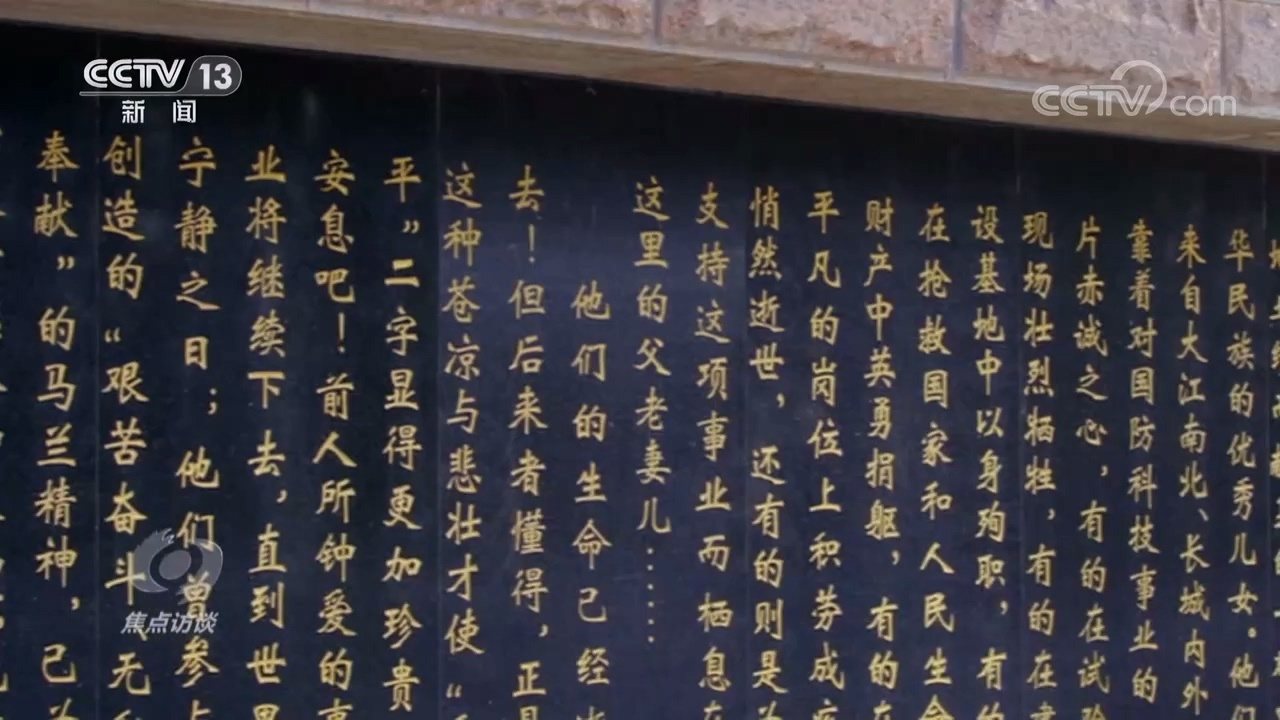 CCTV 13
新闻
CCTV.com
华民族的优秀儿女。他们
来自大江南北、长城内外
靠着对国防科技事业的
片赤诚之心，有的在试验
现场壮烈牺牲，有的在
设基地中以身殉职，有的
在抢救国家和人民生命
财产中英勇捐躯，有的在
平凡的岗位上积劳成疾
悄然逝世，还有的则是为
支持这项事业而栖息在
这里的父老妻儿……
他们的生命已经
去！但后来者懂得，正是
这种苍凉与悲壮才使“
平”二字显得更加珍贵
安息吧！前人所钟爱的事
业将继续下去，直到世界
宁静之日；他们曾参与
创造的“艰苦奋斗、无私
奉献”的马兰精神，已
焦点访谈